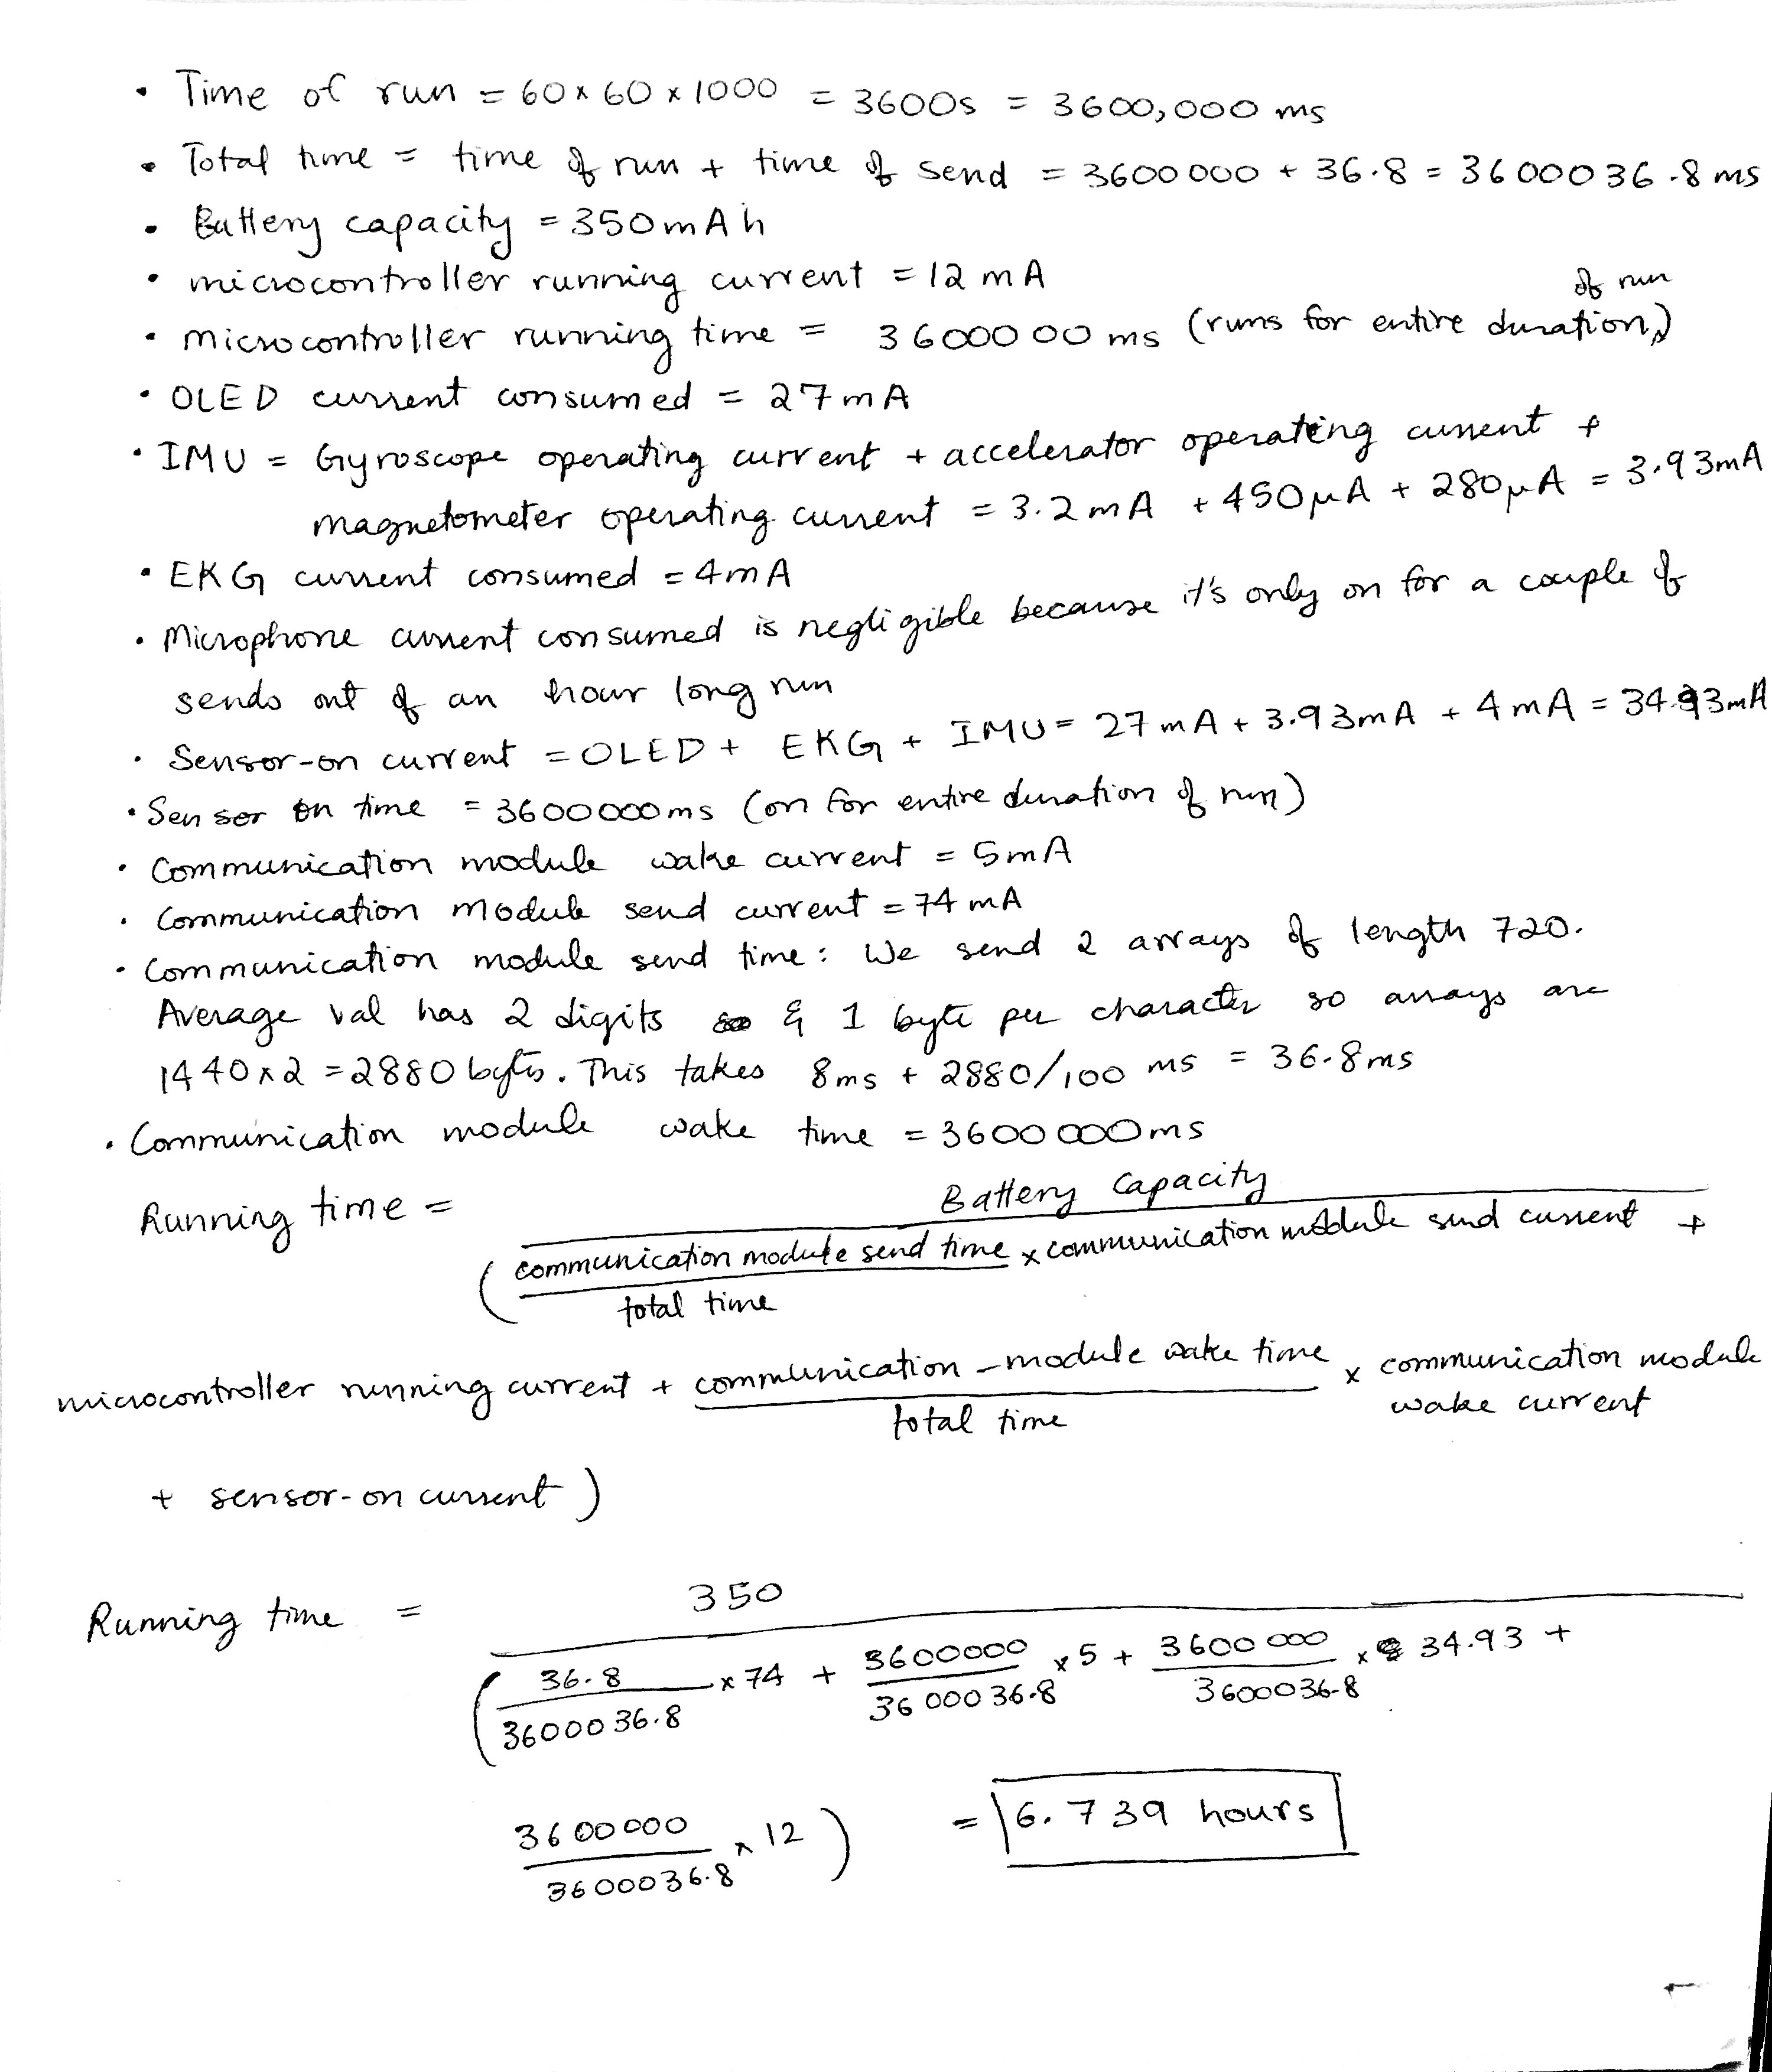 • Time of run = 60 x 60 x 1000 = 3600s = 3600,000 ms
• Total time = time of run + time of send = 3600000 + 36.8 = 3600036.8 ms
• Battery capacity = 350mAh
• microcontroller running current = 12 mA
of run
• microcontroller running time = 3600000 ms (runs for entire duration)
• OLED current consumed = 27mA
• IMU = Gyroscope operating current + accelerator operating current +
magnetometer operating current = 3.2mA + 450μA + 280μA = 3.93mA
• EKG current consumed = 4mA
• Microphone current consumed is negligible because it's only on for a couple of
sends out of an hour long run
• Sensor-on current = OLED + EKG + IMU = 27mA + 3.93mA + 4mA = 34.93mA
• Sensor on time = 3600000ms (on for entire duration of run)
• Communication module wake current = 5mA
• Communication module send current = 74mA
• Communication module send time: We send 2 arrays of length 720.
Average val has 2 digits & 1 byte per character so arrays are
1440x2 = 2880 bytes. This takes 8ms + 2880/100 ms = 36.8ms
• Communication module wake time = 3600000ms
Running time = Battery Capacity
(communication module send time x communication module send current +
total time
microcontroller running current + communication-module wake time x communication module
total time wake current
+ sensor-on current)
Running time = 350
(36.8 x 74 + 3600000 x 5 + 3600000 x 34.93 +
3600036.8 3600036.8 3600036.8
3600000 x 12) = 6.739 hours
3600036.8